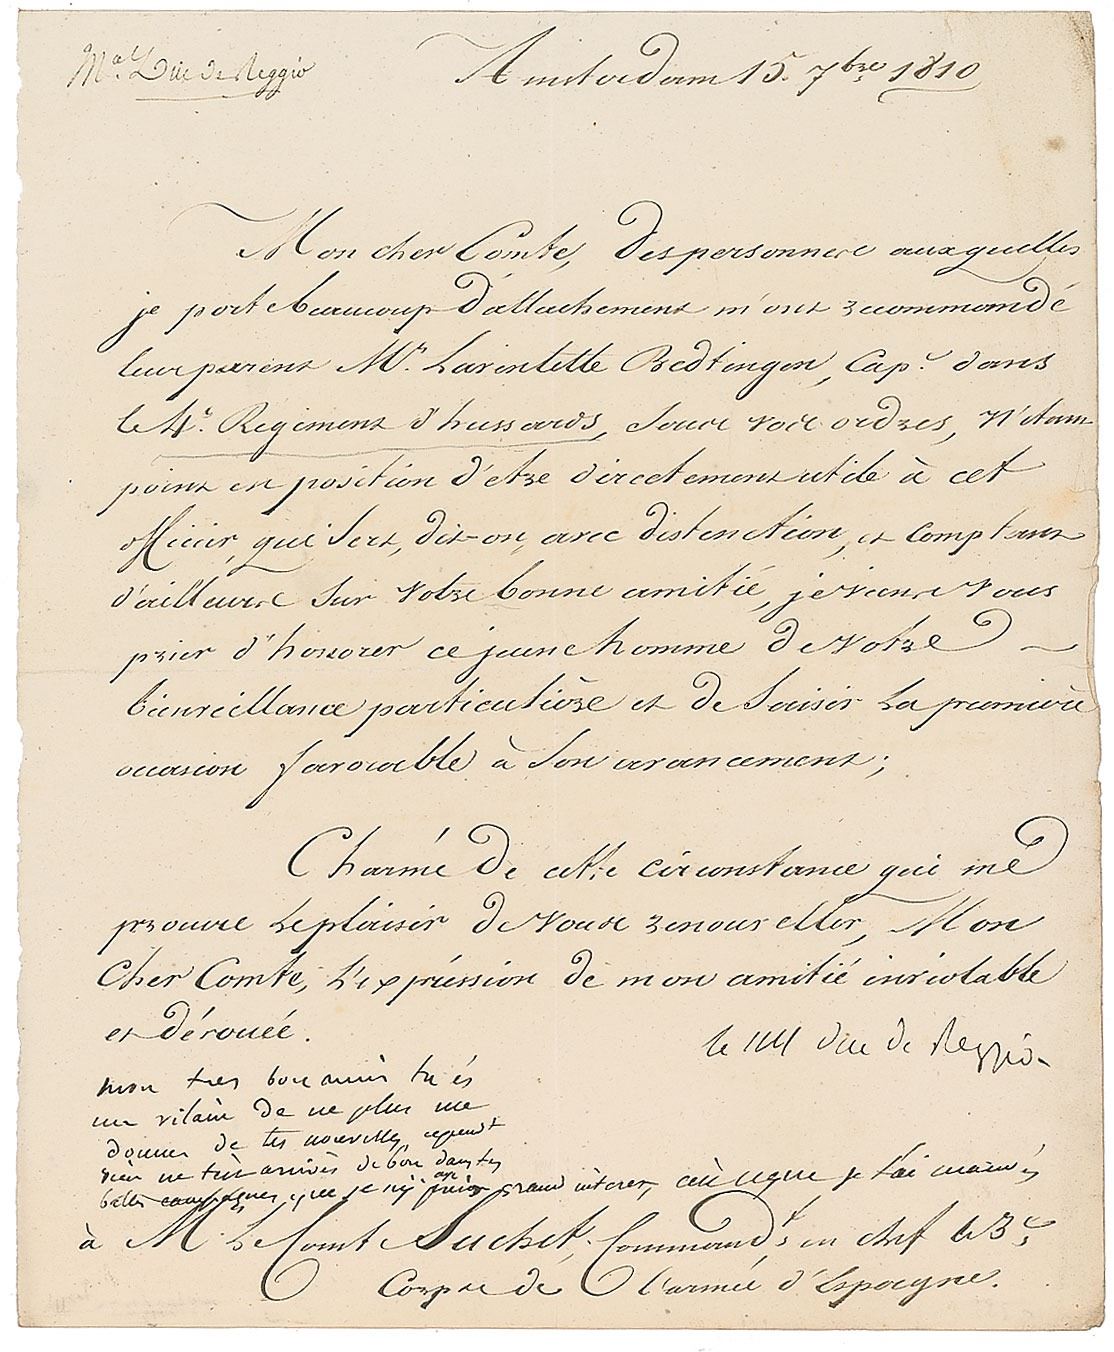 Mal Duc de Reggio
Amsterdam 15. 7bre 1810
Mon cher Comte, Des personnes auxquelles
je porte beaucoup d'attachement m'ont recommandé
leur parent Mr. Bedtingon, Cape. dans
le 4e. Regiment d'hussards, sous vos ordres, N'étant
point en position d'etre directement utile à cet
officier, qui sert, dit-on, avec distinction, et comptant
d'ailleurs sur votre bonne amitié, je viens vous
prier d'honorer ce jeune homme de votre
bienveillance particulière et de saisir la première
occasion favorable à son avancement;
Charmé de cette circonstance qui me
procure le plaisir de vous renouveller, Mon
Cher Comte, l'expréssion de mon amitié inviolable
et dévouée.
le Mal duc de Reggio
mon tres bon amis tu és
un vilain de ne plus me
donner de tes nouvelles, cepend't
rien ne t'est arrivés de bon dans tes
belles campagnes, que je n'y ai pris grand intéret,
à Mr. le Comte Suchet, Commandt. en chef le 3e.
Corps de l'armée d'Espagne.